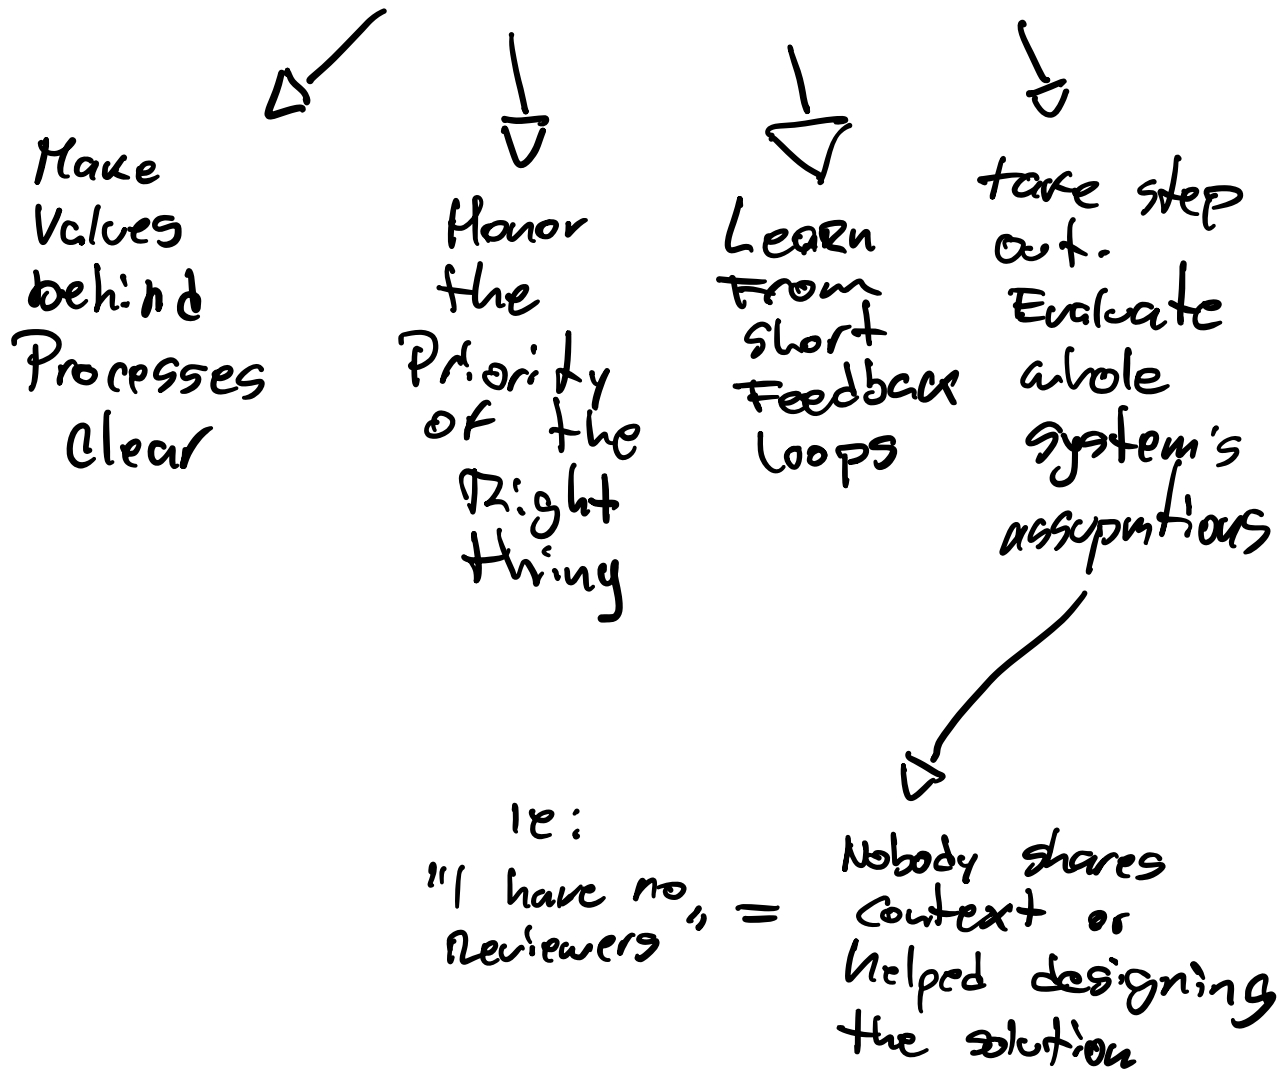 Make
Values
behind
Processes
Clear
Honor
the
Priority
of the
Right
thing
Learn
From
short
Feedback
Loops
take step
out.
Evaluate
whole
system's
assupmtions
ie:
"I have no
Reviewers" =
Nobody shares
context or
helped designing
the solution